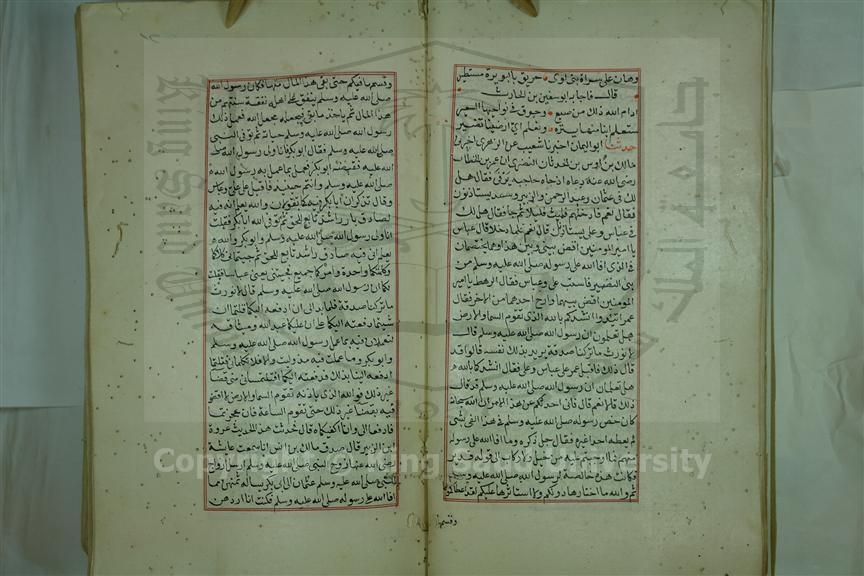 وهان على سراة بني لوي حريق بالبويرة مستطير
قال فاجابه ابو سفين بن الحارث
ادام الله ذلك من صنيع وحرق في نواحيها السعير
ستعلم اينا منها بنزه وتعلم اي ارضينا تضير
حدثنا ابو اليمان اخبرنا شعيب عن الزهري اخبرني
مالك بن اوس بن الحدثان النصري ان عمر بن الخطاب
رضي الله عنه دعاه اذ جاه حاجبه يرفي فقال هل
لك في عثمان وعبد الرحمن والزبير وسعد يستاذنون
فقال نعم فادخلهم فلبث قليلا ثم جا فقال هل لك
في عباس وعلي يستاذنان قال نعم فلما دخلا قال عباس
يا امير المومنين اقض بيني وبين هذا وهما يختصمان
في الذي افا الله على رسوله صلى الله عليه وسلم من
بني النضير فاستب علي وعباس فقال الرهط يا امير
المومنين اقض بينهما وارح احدهما من الاخر فقال
عمر اتئدوا انشدكم بالله الذي تقوم السما والارض
هل تعلمون ان رسول الله صلى الله عليه وسلم قال
لا نورث ما تركنا صدقة يريد بذلك نفسه قالوا قد
قال ذلك فاقبل عمر على عباس وعلي فقال انشدكما بالله
هل تعلمان ان رسول الله صلى الله عليه وسلم قد قال
ذلك قالا نعم قال فاني احدثكم عن هذا الامر ان الله سبحانه
كان خص رسوله صلى الله عليه وسلم في هذا الفي بشي
لم يعطه احدا غيره فقال جل ذكره وما افا الله على رسوله
منهم فما اوجفتم عليه من خيل ولا ركاب الى قوله قدير
فكانت هذه خالصة لرسول الله صلى الله عليه وسلم
ثم والله ما احتازها دونكم ولا استاثرها عليكم لقد اعطاكموها
وقسمها
وقسمها فيكم حتى بقي هذا المال منها فكان رسول الله
صلى الله عليه وسلم ينفق على اهله نفقة سنتهم من
هذا المال ثم ياخذ ما بقي فيجعله مجعل الله فعمل ذلك
رسول الله صلى الله عليه وسلم حياته ثم توفي النبي
صلى الله عليه وسلم فقال ابو بكر فانا ولي رسول الله صلى
الله عليه فقبضه ابو بكر فعمل بما عمل به رسول الله
صلى الله عليه وسلم وانتم حينيذ فاقبل على علي وعباس
وقال تذكران ابا بكر فيه كما تقولان والله يعلم انه فيه
لصادق بار راشد تابع للحق ثم توفي الله ابا بكر فقلت
انا ولي رسول الله صلى الله عليه وسلم وابو بكر والله
يعلم اني فيه صادق راشد تابع للحق ثم جيتماني كلاكما
وكلمتكما واحدة وامركما جميع فجيتني يعني عباسا فقلت
لكما ان رسول الله صلى الله عليه وسلم قال لا نورث
ما تركنا صدقة فلما بدا لي ان ادفعه اليكما قلت ان
شيتما دفعته اليكما على ان عليكما عهد الله وميثاقه
لتعملان فيه بما عمل رسول الله صلى الله عليه وسلم
وابو بكر وما عملت فيه مذ وليت والا فلا تكلماني فقلتما
ادفعه الينا بذلك فدفعته اليكما افتلتمسان مني قضا
غير ذلك فوالله الذي باذنه تقوم السما والارض لا اقضي
فيه بقضا غير ذلك حتى تقوم الساعة فان عجزتما
فادفعا الي وانا اكفيكماه قال فحدثت هذا الحديث عروة
ابن الزبير فقال صدق مالك بن اوس انا سمعت عايشة
رضي الله عنها زوج النبي صلى الله عليه وسلم ارسل ازواج
النبي صلى الله عليه وسلم عثمان الى ابي بكر يسالنه ثمنهن مما
افا الله على رسوله صلى الله عليه وسلم فكنت انا اردهن
جامعة الملك
King Saud
Copyright © King Saud University